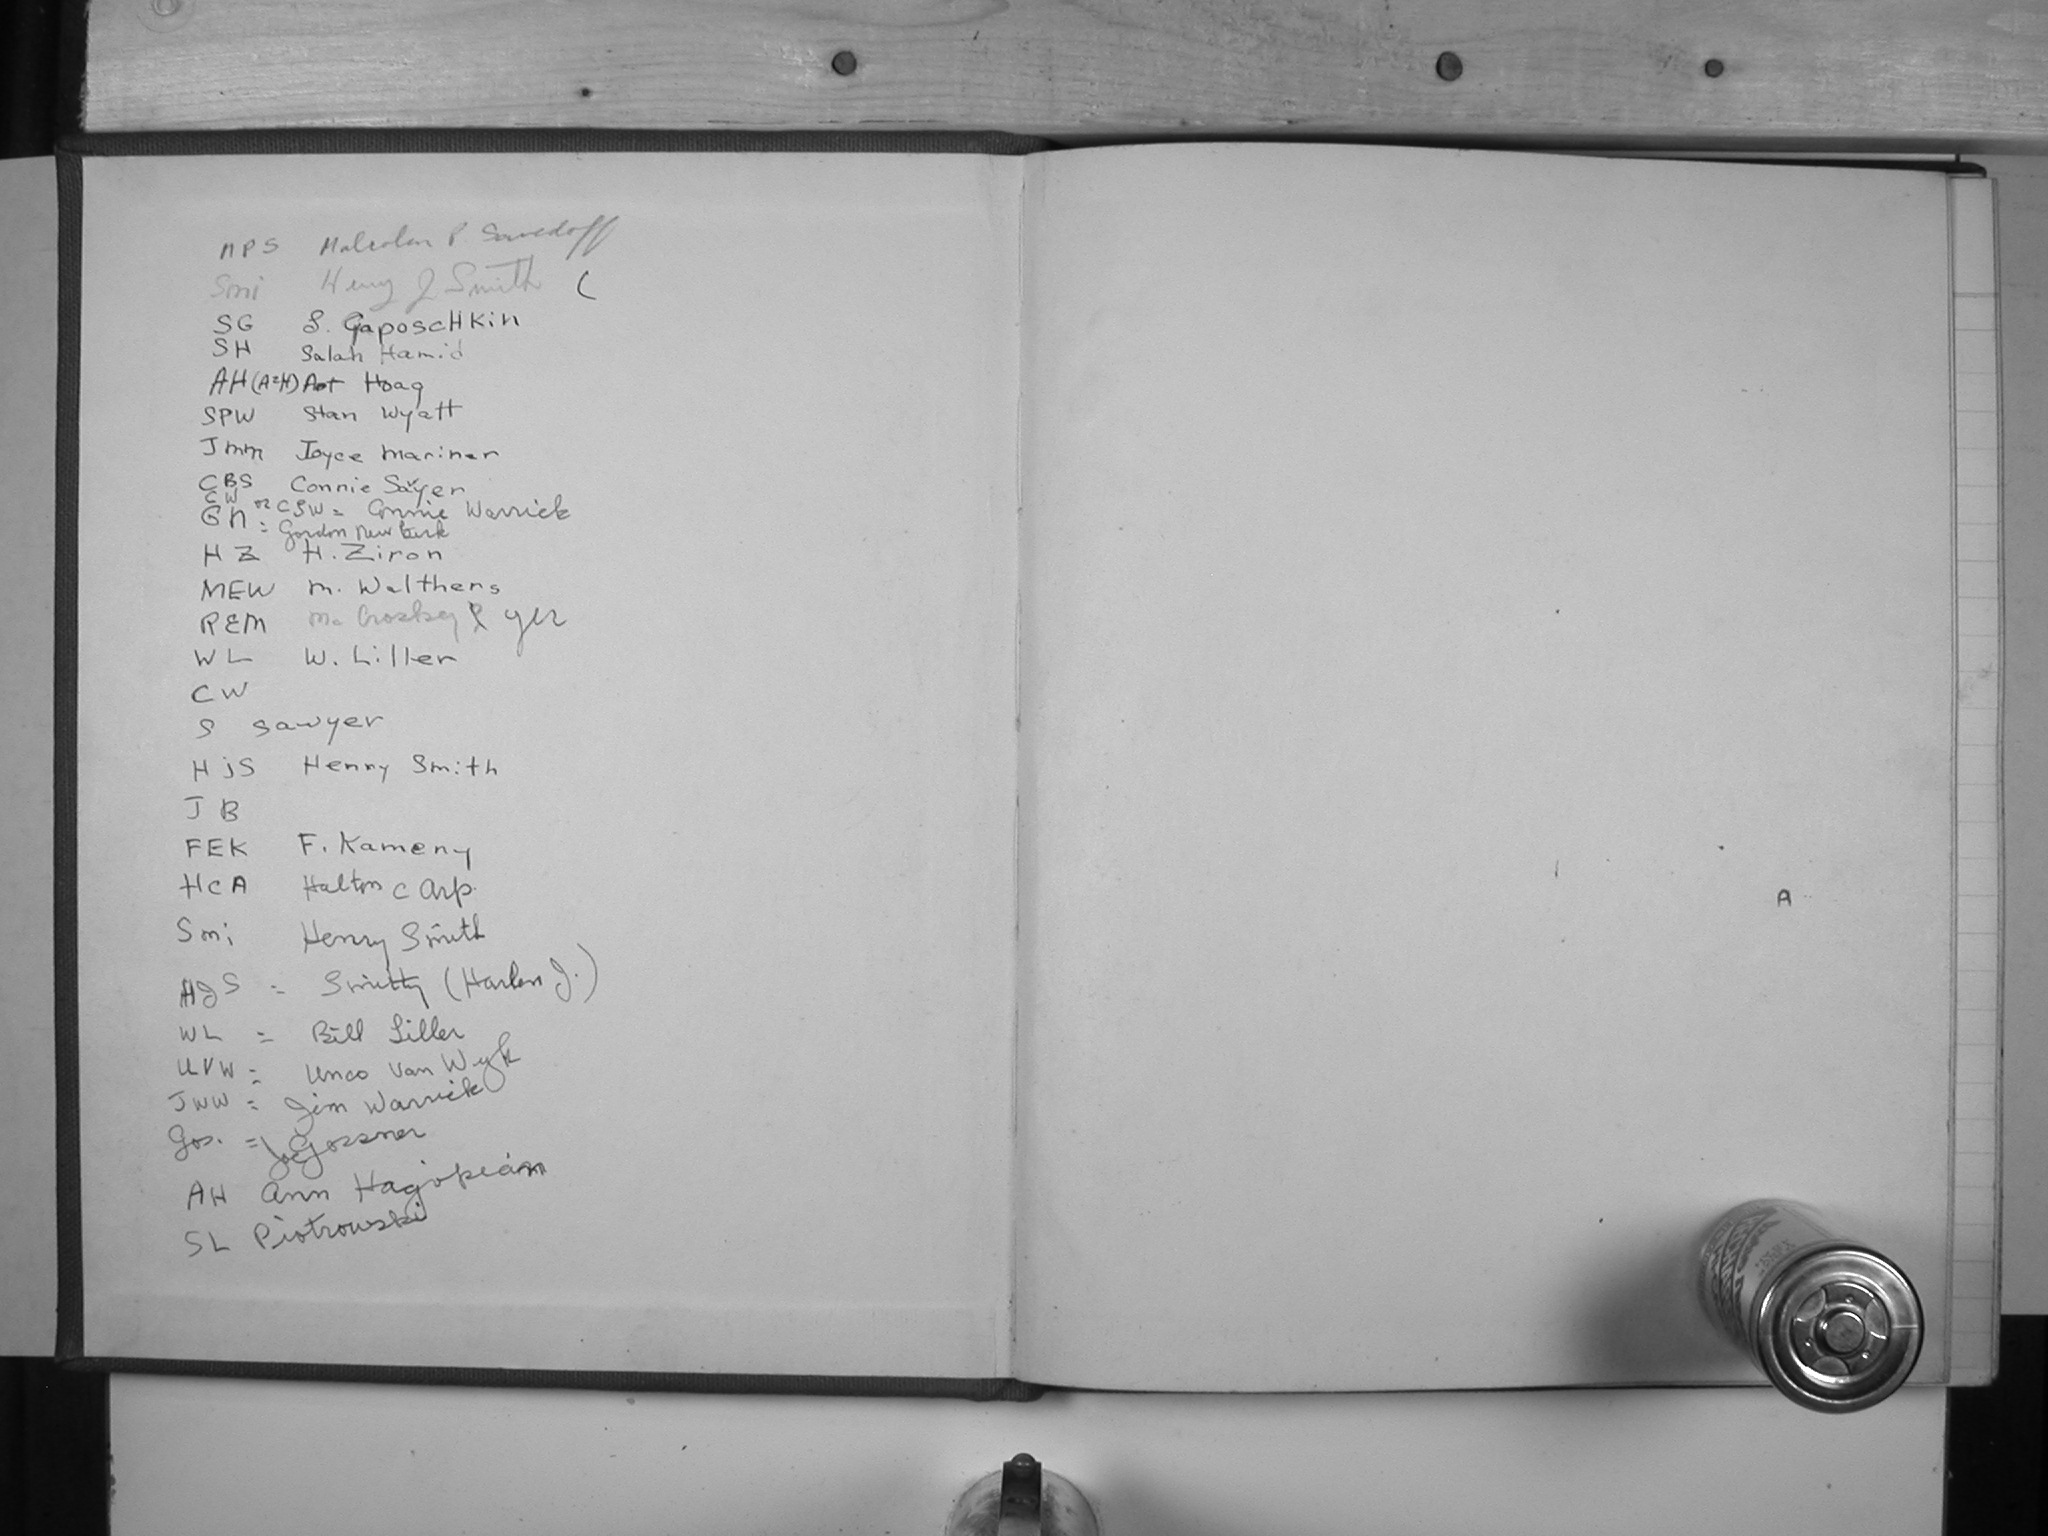 MPS Malcolm P. Savedoff
Smi Henry J Smith (
SG S. GaposcHKin
SH Salah Hamid
AH (A=H) Art Hoag
SPW Stan Wyatt
Jmm Joyce Mariner
CBS Connie Sawyer
CW or CSW = Connie Warrick
GN = Gordon Newkirk
HZ H. Ziron
MEW M. Walthers
REM Mc Croskey
WL W. Liller
CW
S Sawyer
HjS Henry Smith
JB
FEK F. Kameny
HCA Halton C Arp.
Smi Henry Smith
HJS = Smitty (Harlan J.)
WL = Bill Liller
UVW = Unco Van Wyk
JWW = Jim Warrick
Gos. = Joe Gossner
AH Ann Hagopian
SL Piotrowski
A